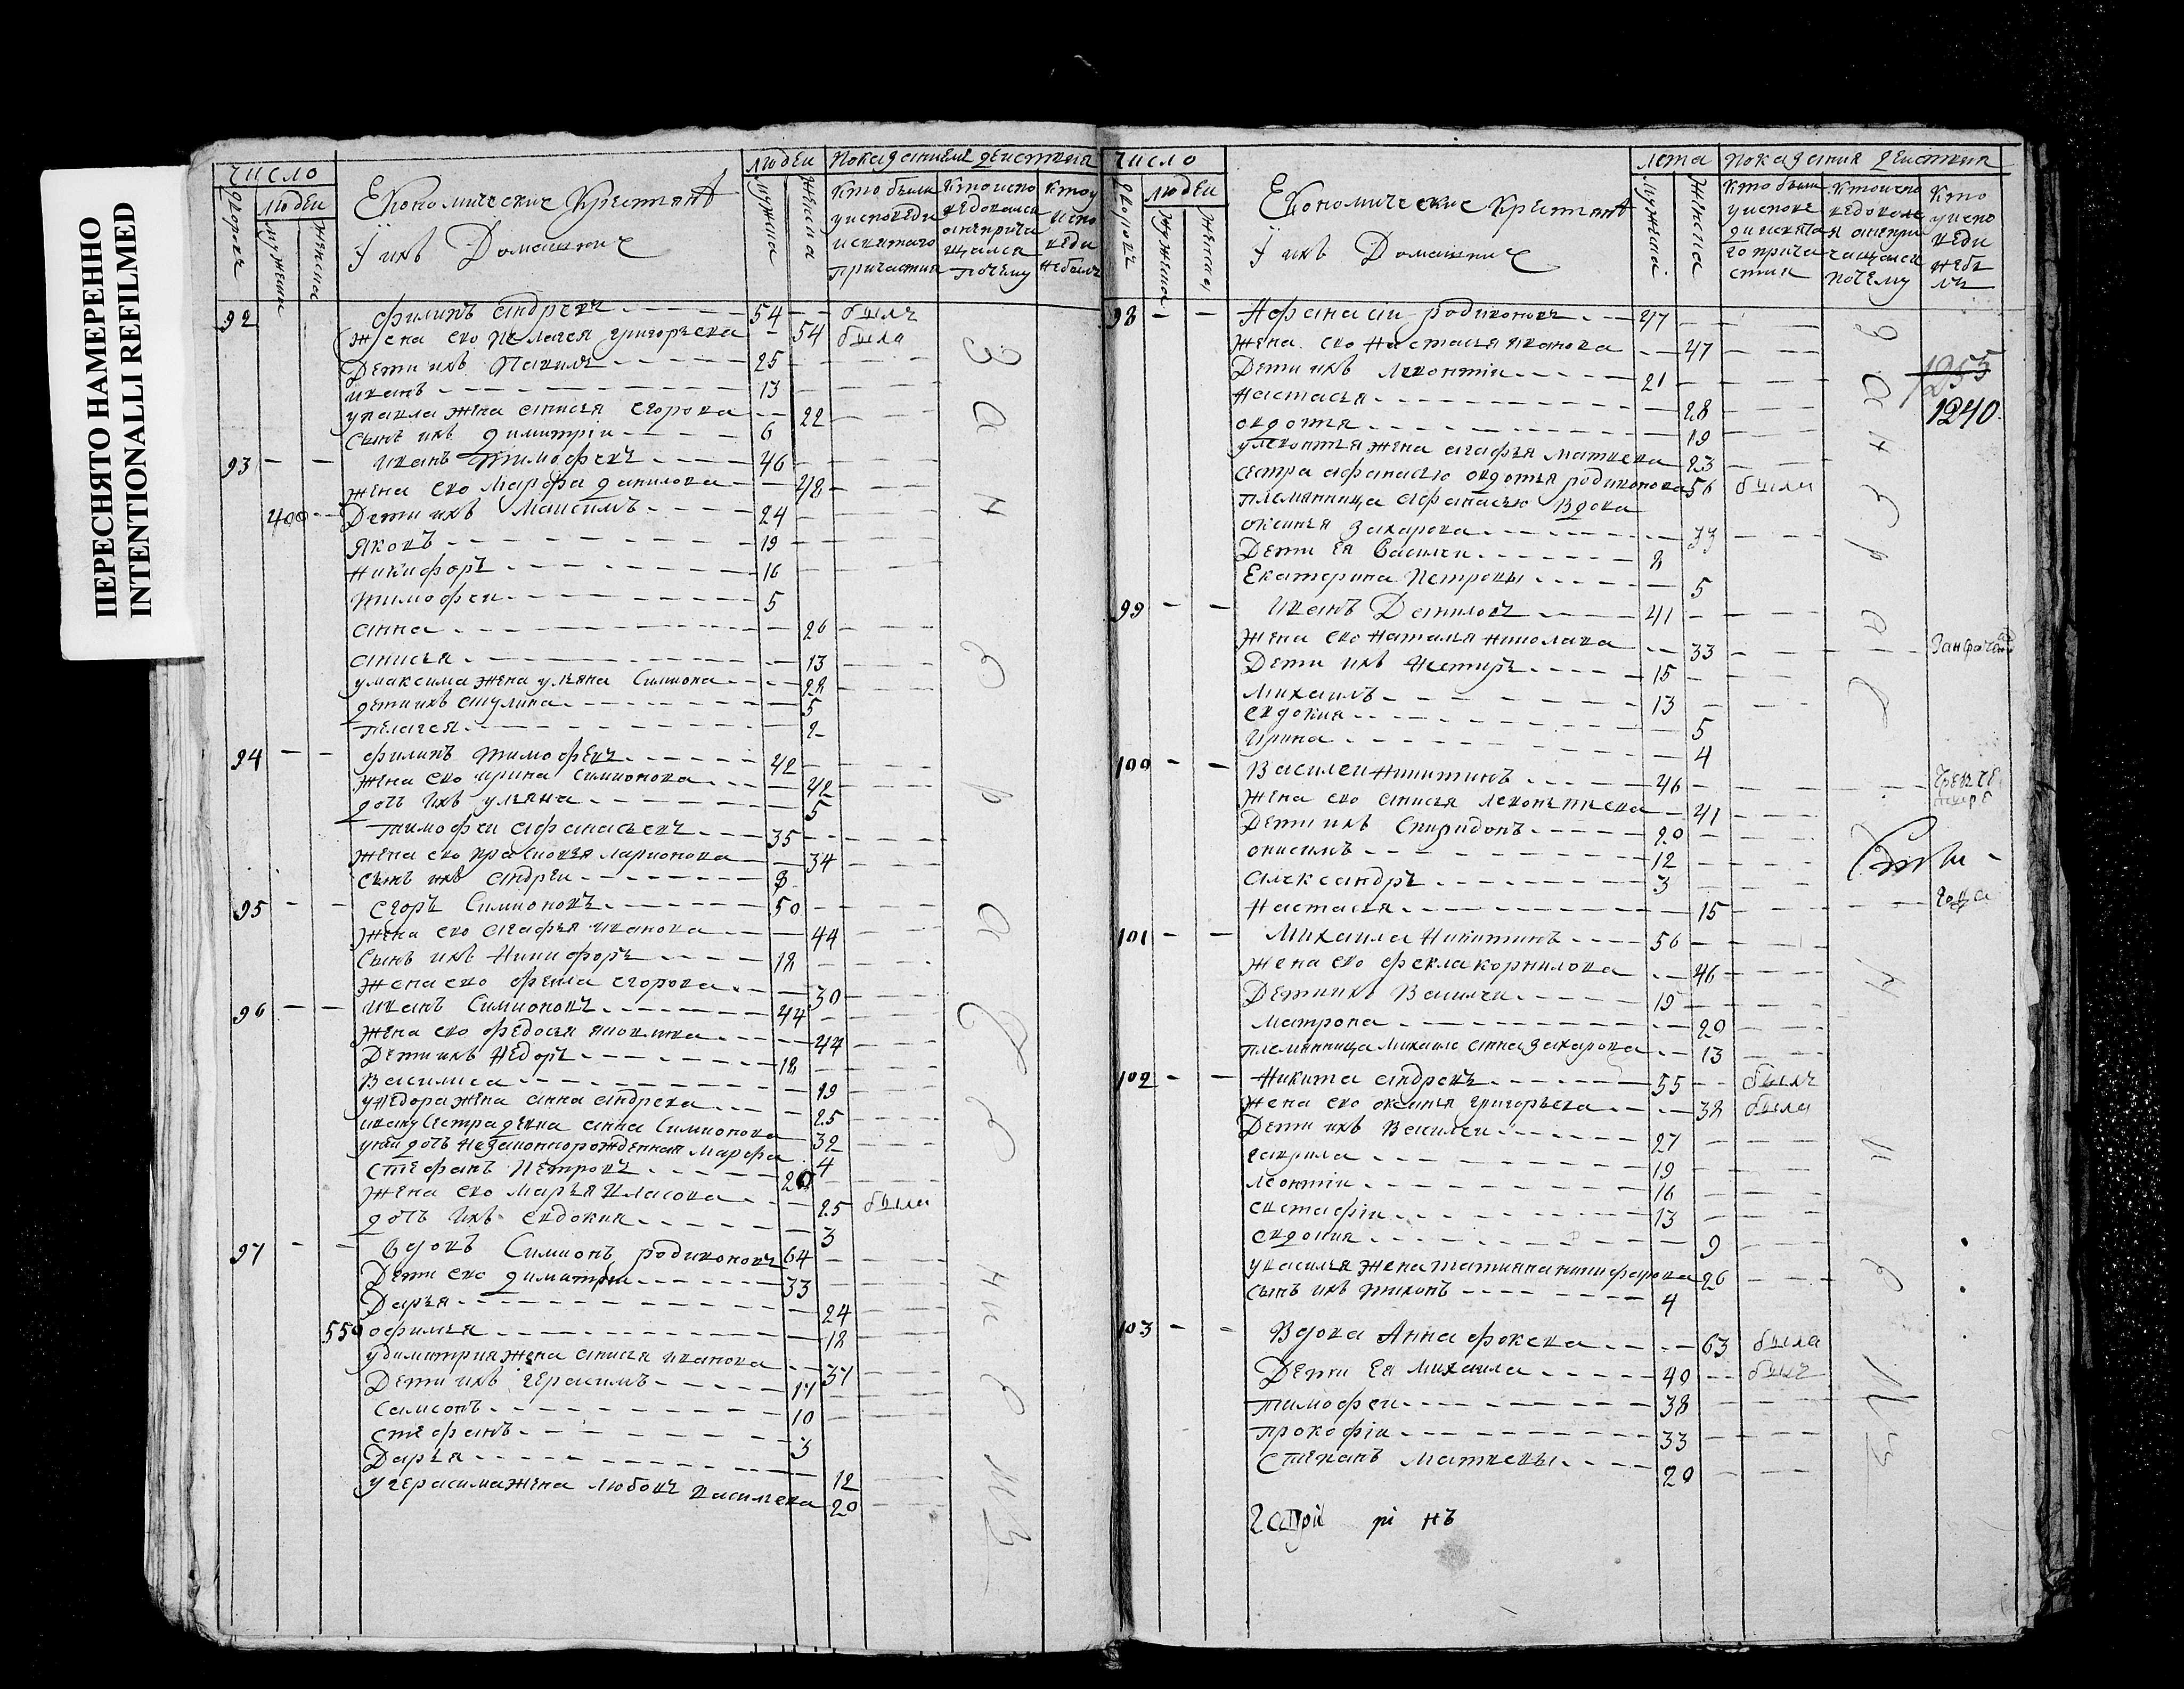 ПЕРЕСНЯТО НАМЕРЕННО
INTENTIONALLI REFILMED
число
людеи
мужеска
женска
Економические Крестьяня
Ї ихъ Домашние
людеи
мужска
женска
кто были
у исповеди
и святаго
причастия
кто испо
ведовался
а неприча
щался
почему
кто у
испо
веди
небылъ
92 Филипъ андреевъ 54 былъ
жена ево пелагея григорьева 54 была
Дети ихъ Павилъ 25
иванъ 13
у павла жена анисья егорова 22
сынъ ихъ димитрiи 6
93 Иванъ тимофеевъ 46
жена ево марфа данилова 48
400 Дети ихъ Максимъ 24
яковъ 19
никифоръ 16
тимофеи 5
анна 26
анисья 13
у максима жена ульяна симионова 28
дети ихъ акулина 5
пелагея 2
94 филипъ тимофеевъ 42
жена ево ирина симионова 42
дочь ихъ ульяна 5
тимофеи афанасьевъ 35
жена ево прасковья ларионова 34
сынъ ихъ андреи 8
95 егоръ Симионовъ 50
жена ево агафья иванова 44
Сынъ ихъ Никифоръ 18
жена ево фекла егорова 30
96 иванъ Симионовъ 44
жена ево федосья яковлева 44
Дети ихъ Федоръ 18
Василиса 19
у федора жена анна андреева 25
ивану сестра девка анна Симионова 32
у неи дочь незаконнорожденная марфа 4
Стефанъ Петровъ 20
жена ево марья власова 25 была
дочь ихъ евдокия 3
97 Вдовъ Симионъ родионовъ 64
Дети ево димитрии 33
Дарья 24
550 офимья 18
у димитрия жена анисья иванова 37
Дети ихъ герасимъ 17
Самсонъ 10
стефанъ 3
Дарья 12
у герасима жена любовь васильева 20
За нерадениемъ
число
людеи
мужеска
женска
Економические Крестьяня
Ї ихъ Домашние
лета
мужеска
женска
показания деиствия
кто были
у испове
ди и свята
го прича
стия
кто испо
ведовалс
я а непри
чащался
почему
кто
у испо
веди
небы
лъ
98 Афанасiи родионовъ 47
жена ево настасья иванова 47
Дети ихъ леонтiи 21
настасья 28
овдотья 19
у леонтья жена агафья матвеева 23
сестра афанасью овдотья родионова 56 была
племянница афанасью Вдова
оксинья захарова 33
Дети ея Василеи 8
Екатерина Петровы 5
1255
1240
99 Иванъ Даниловъ 41
жена ево наталья николаева 33
Дети ихъ Нестиръ 15
михаилъ 13
евдокия 5
Ирина 4
100 Василеи никитинъ 46
жена ево анисья леонтьева 41
Дети ихъ Спиридонъ 20
онисимъ 12
александръ 3
настасья 15
101 Михаила Никитинъ 56
жена ево фекла корнилова 46
Дети ихъ Василеи 19
матрона 20
племянница михаиле анна захарова 13
102 Никита андреевъ 55 былъ
жена ево оксинья григорьева 38 была
Дети ихъ Василеи 27
гаврила 19
леонтiи 16
евстафiи 13
евдокия 9
у василья жена татияна никифорова 26
сынъ ихъ тихонъ 4
103 Вдова Анна фокеева 63 была
Дети ея михаила 40 былъ
тимофеи 38
прокофiи 33
Степанъ матвеевы 20
За нерадениемъ